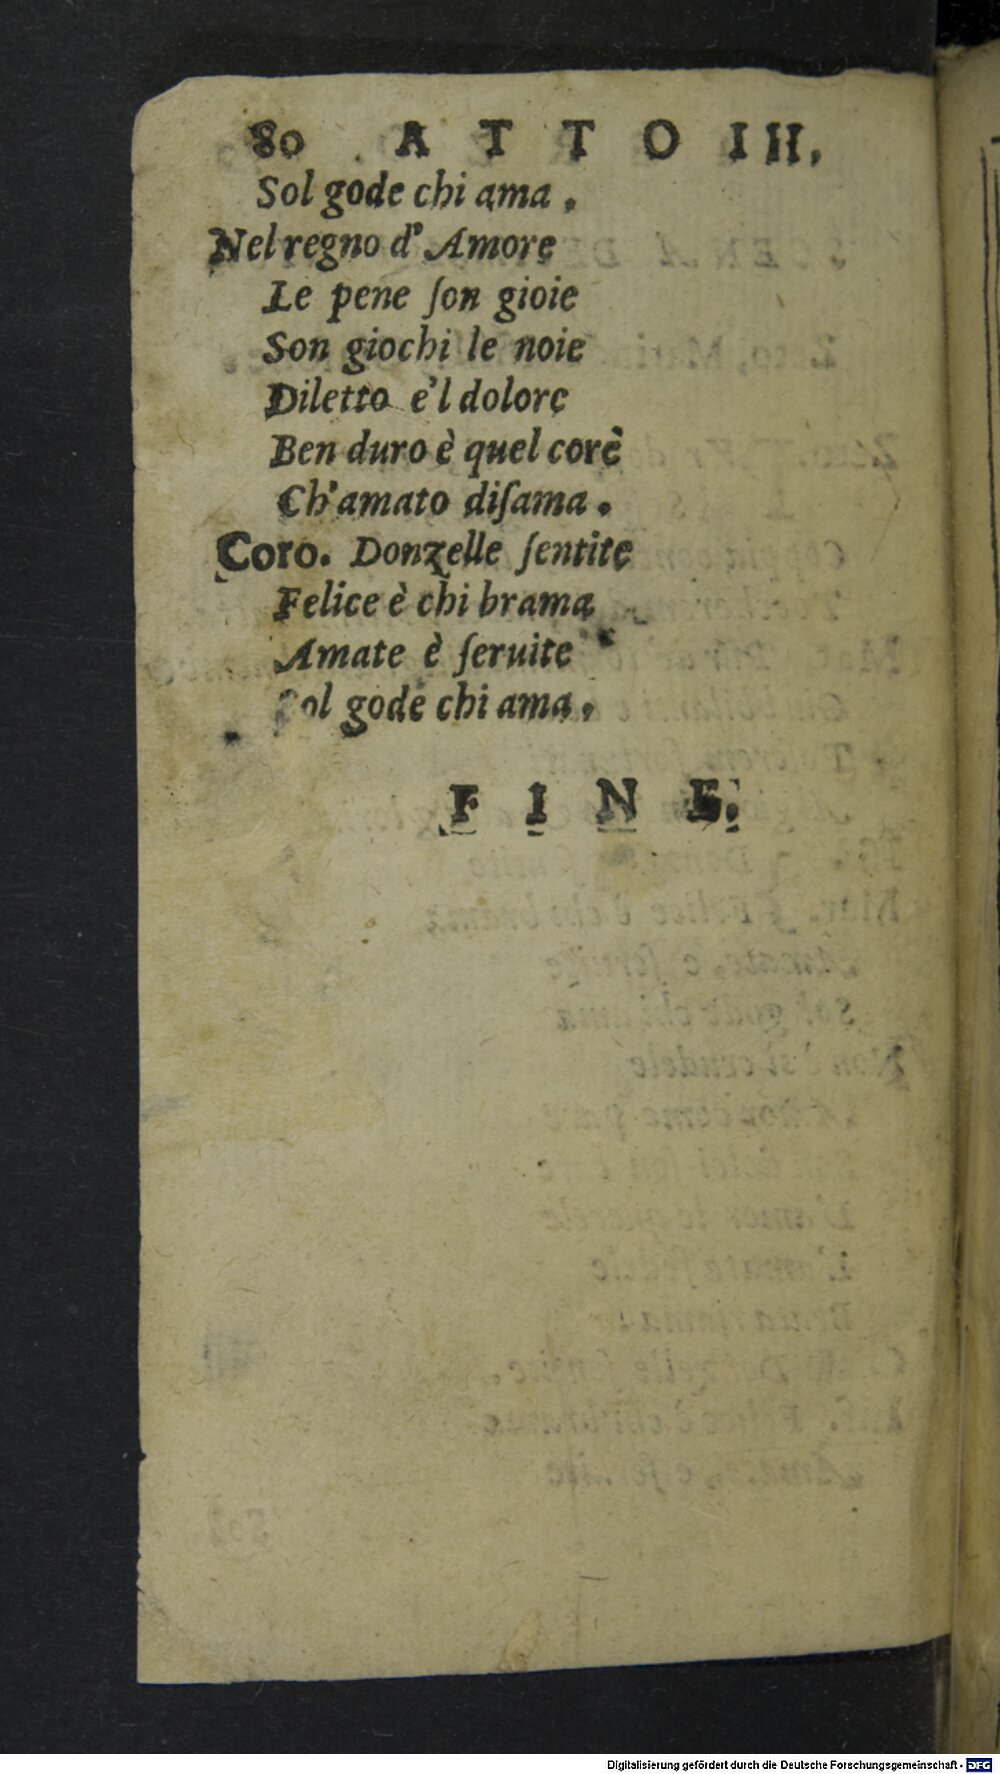 80 ATTO III.
Sol gode chi ama.
Nel regno d'Amore
Le pene ſon gioie
Son giochi le noie
Diletto e'l dolore
Ben duro è quel corè
Ch'amato diſama.
Coro. Donzelle ſentite
Felice è chi brama
Amate è ſeruite
Sol gode chi ama.
FINE.
Digitalisierung gefördert durch die Deutsche Forschungsgemeinschaft - DFG